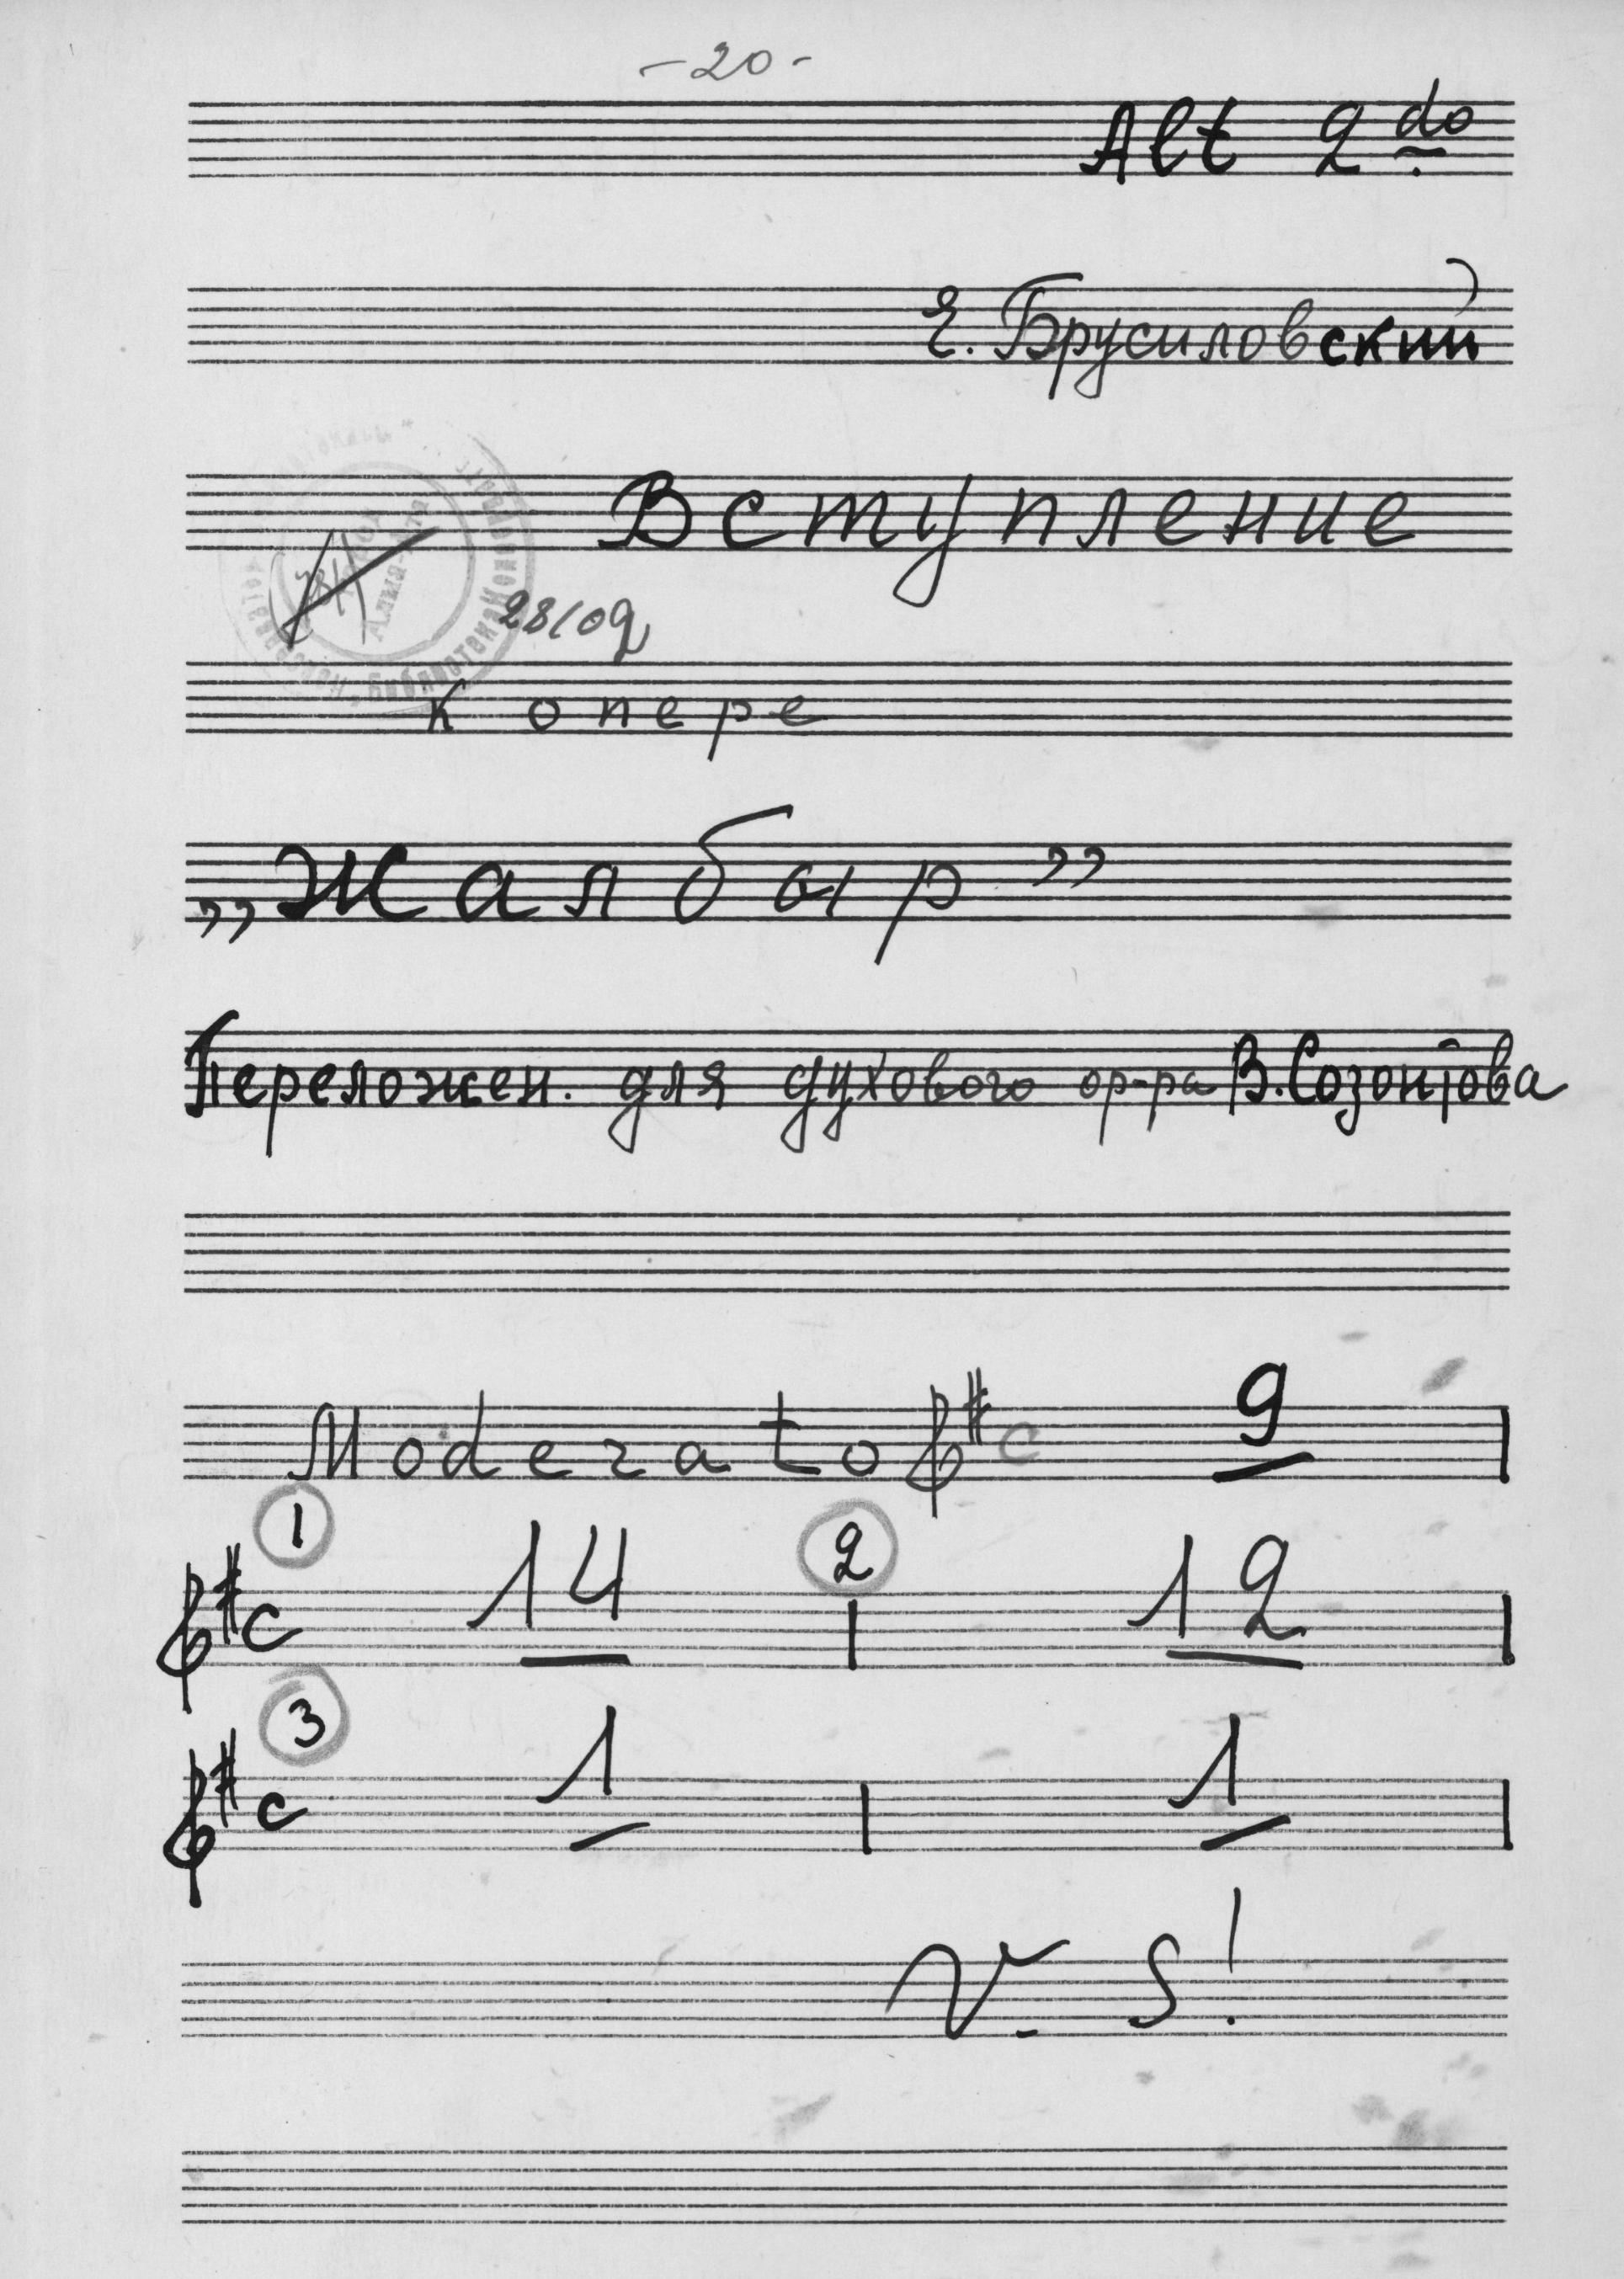 -20-
Alt 2do
Е. Брусиловский
Вступление
28/09
к опере
„Жалбыр”
Переложен. для духового ор-ра В. Созонтова
Moderato C 9
1 2
C 14 12
3
C 1 1
V. S!